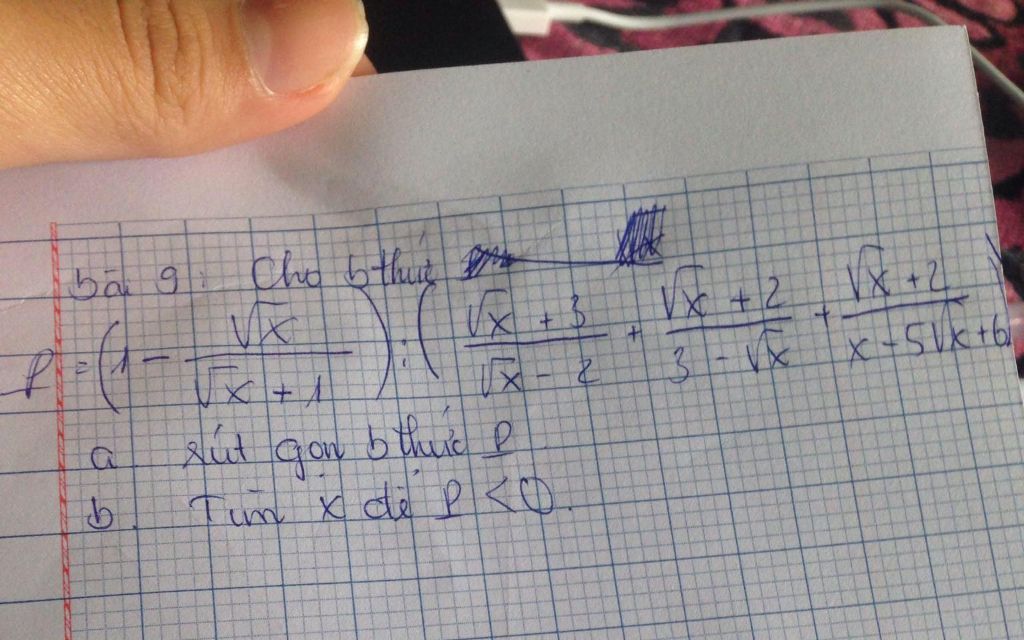 bài 9: Cho bthức
P = (1 - √x / (√x + 1)) : ((√x + 3) / (√x - 2) + (√x + 2) / (3 - √x) + (√x + 2) / (x - 5√x + 6))
a. rút gọn bthức P
b. Tìm x để P < 0.